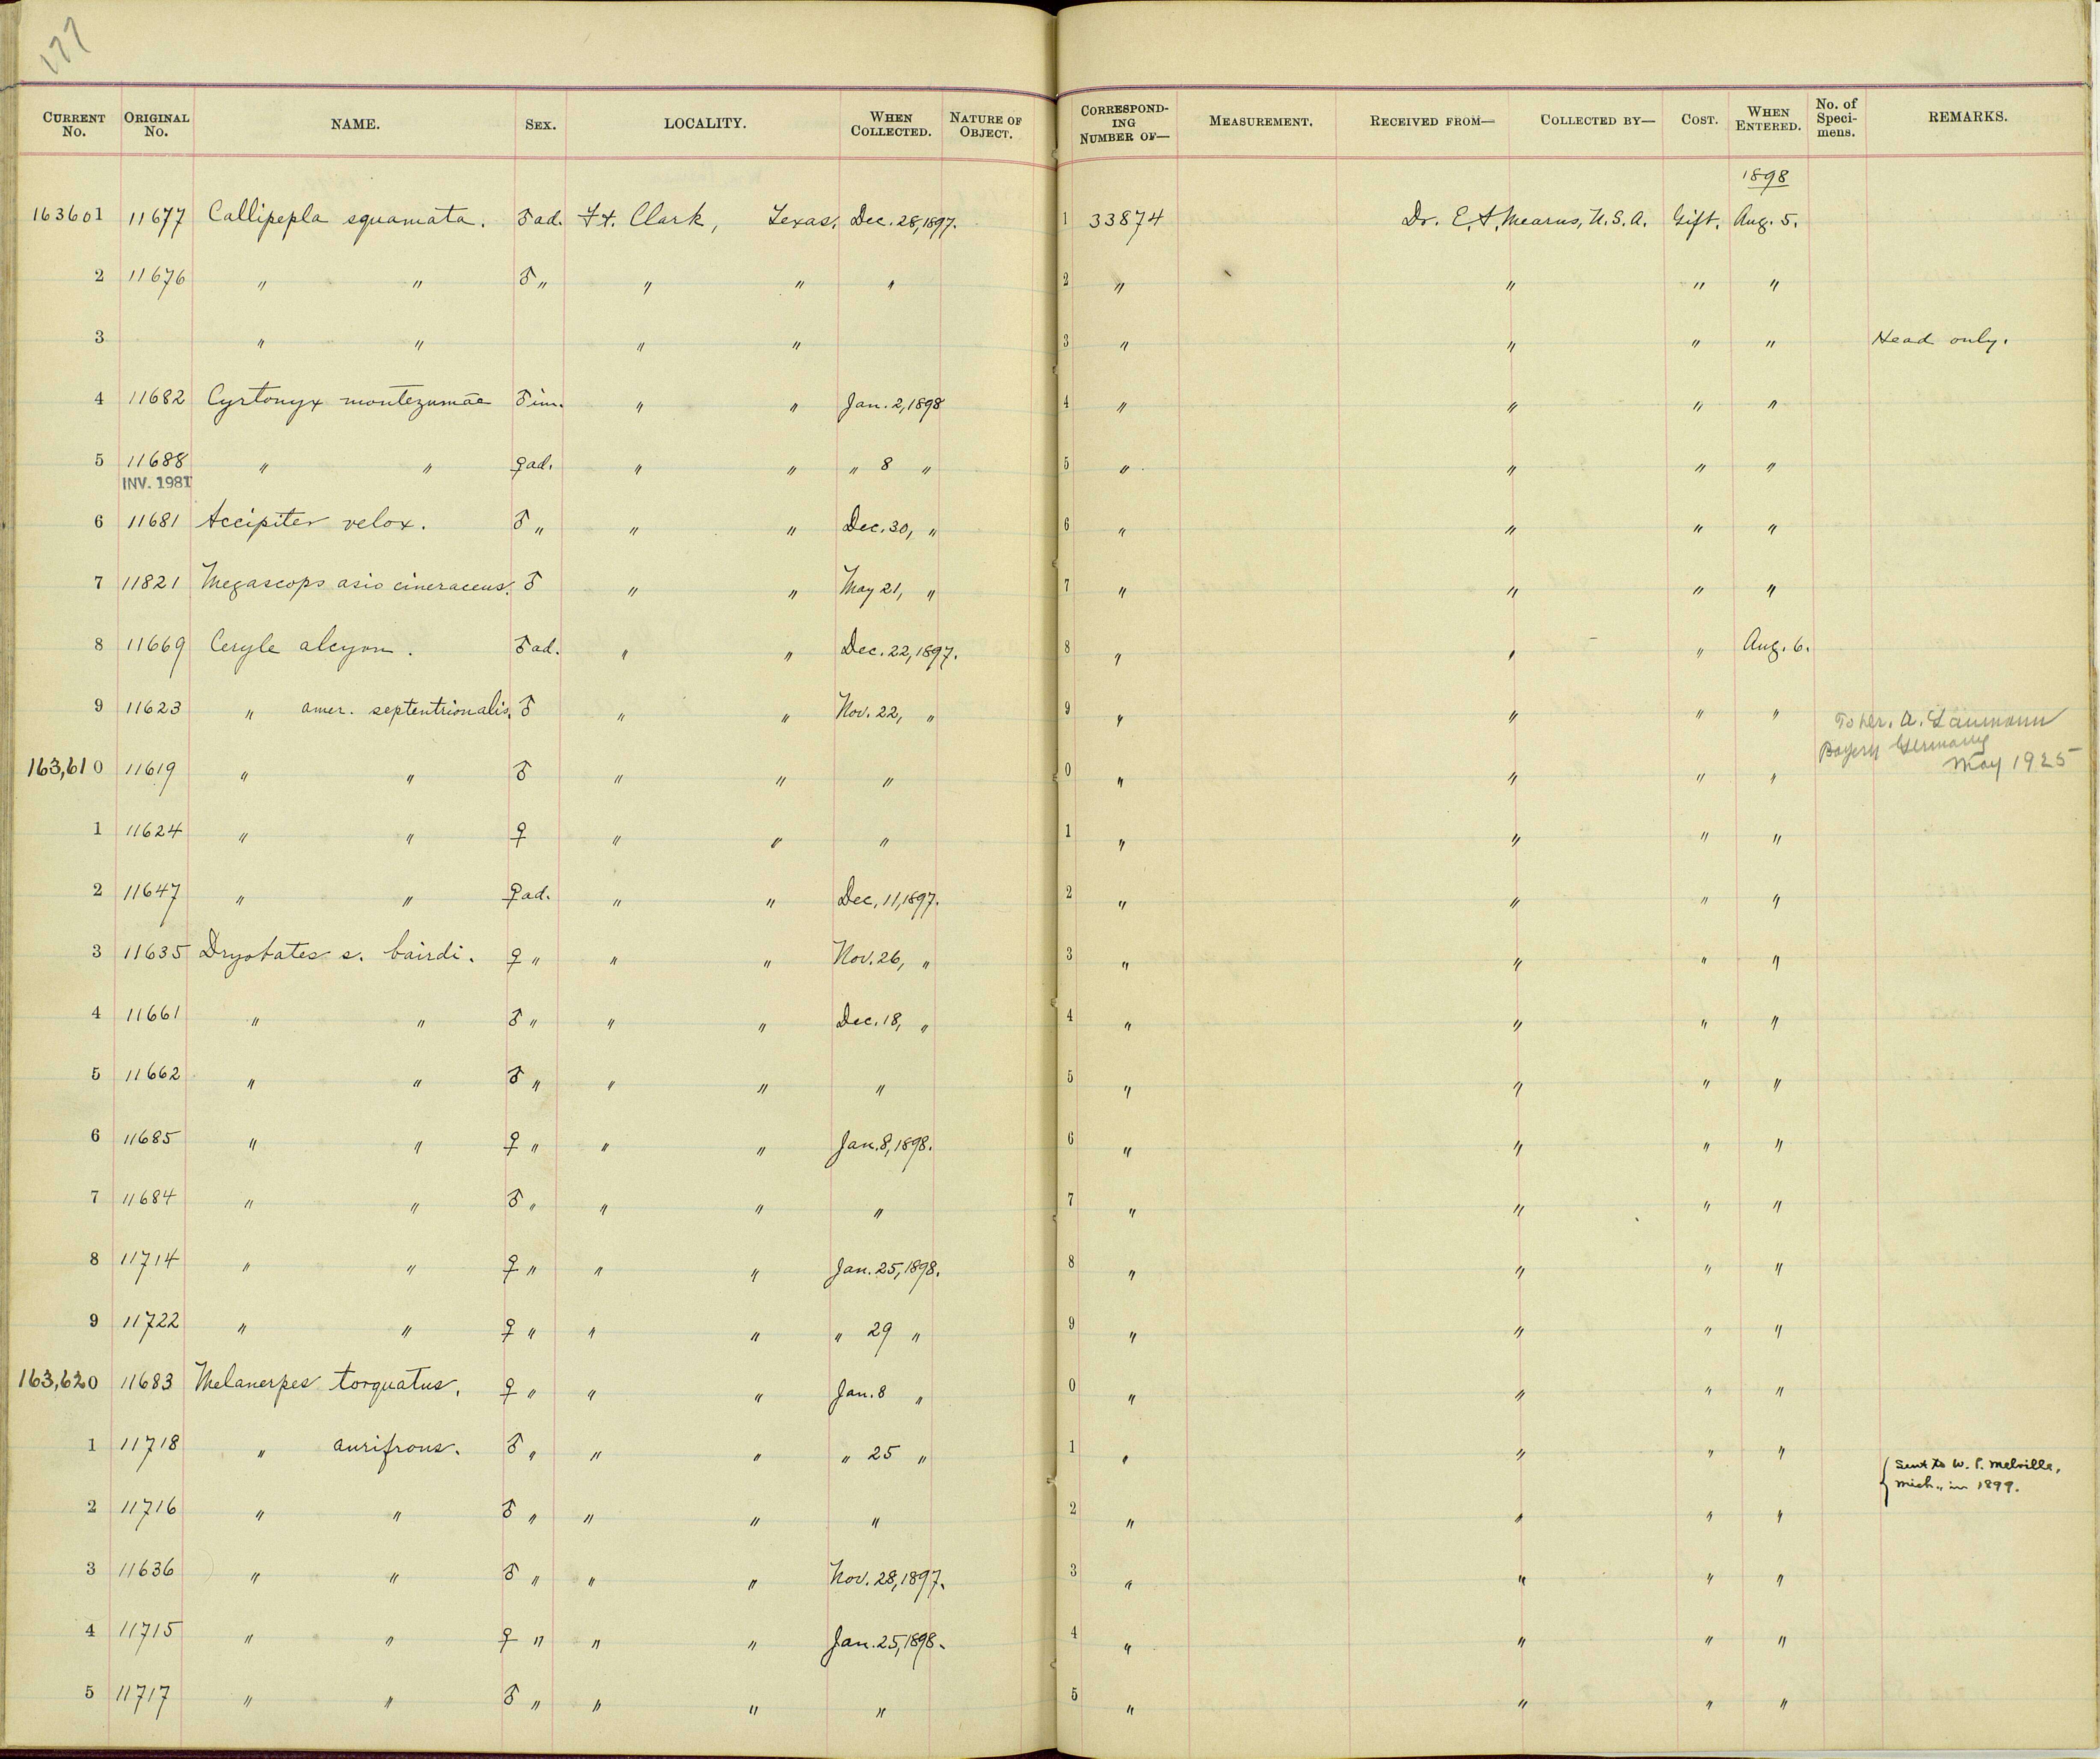 177
CURRENT No. ORIGINAL No. NAME. SEX. LOCALITY. WHEN COLLECTED. NATURE OF OBJECT. CORRESPONDING NUMBER OF— MEASUREMENT. RECEIVED FROM— COLLECTED BY— COST. WHEN ENTERED. No. of Specimens. REMARKS.
1898
163601 11677 Callipepla squamata. ♂ad. Ft. Clark, Texas. Dec. 28, 1897. 1 33874 Dr. E. A. Mearns, U.S.A. Gift. Aug. 5.
2 11676 " " ♂ " " " " 2 " " " "
3 " " " " 3 " " " " Head only.
4 11682 Cyrtonyx montezumae ♂im. " " Jan. 2, 1898 4 " " " "
5 11688 " " ♀ad. " " " 8 " 5 " " " "
INV. 1981
6 11681 Accipiter velox. ♂ " " " Dec. 30, " 6 " " " "
7 11821 Megascops asio cineraceus. ♂ " " May 21, " 7 " " " "
8 11669 Ceryle alcyon. ♂ad. " " Dec. 22, 1897. 8 " " " Aug. 6.
9 11623 " amer. septentrionalis. ♂ " " Nov. 22, " 9 " " " " To Dr. A. Laumann
Bayern Germany
May 1925
163,610 11619 " " ♂ " " " 0 " " " "
1 11624 " " ♀ " " " 1 " " " "
2 11647 " " ♀ad. " " Dec. 11, 1897. 2 " " " "
3 11635 Dryobates s. bairdi. ♀ " " " Nov. 26, " 3 " " " "
4 11661 " " ♂ " " " Dec. 18, " 4 " " " "
5 11662 " " ♂ " " " " 5 " " " "
6 11685 " " ♀ " " " Jan. 8, 1898. 6 " " " "
7 11684 " " ♂ " " " " 7 " " " "
8 11714 " " ♀ " " " Jan. 25, 1898. 8 " " " "
9 11722 " " ♀ " " " " 29 " 9 " " " "
163,620 11683 Melanerpes torquatus. ♀ " " " Jan. 8 " 0 " " " "
1 11718 " aurifrons. ♂ " " " " 25 " 1 " " " "
{ Sent to W. P. Melville,
Mich., in 1899.
2 11716 " " ♂ " " " " 2 " " " "
3 11636 " " ♂ " " " Nov. 28, 1897. 3 " " " "
4 11715 " " ♀ " " " Jan. 25, 1898. 4 " " " "
5 11717 " " ♂ " " " " 5 " " " "